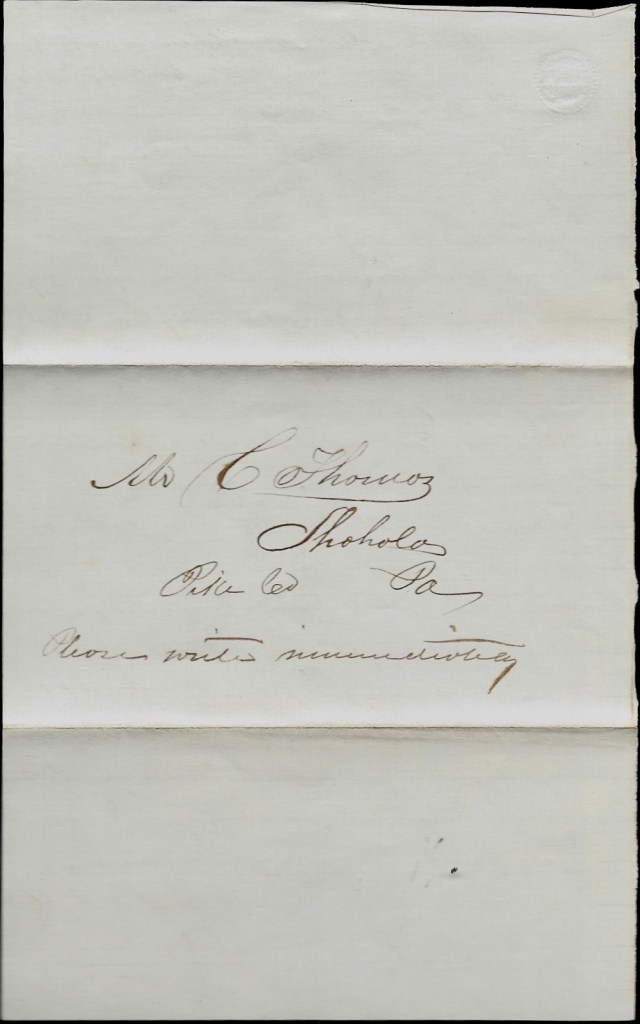 Mr C Thomas
Shohola
Pike Co Pa
Please write immediately